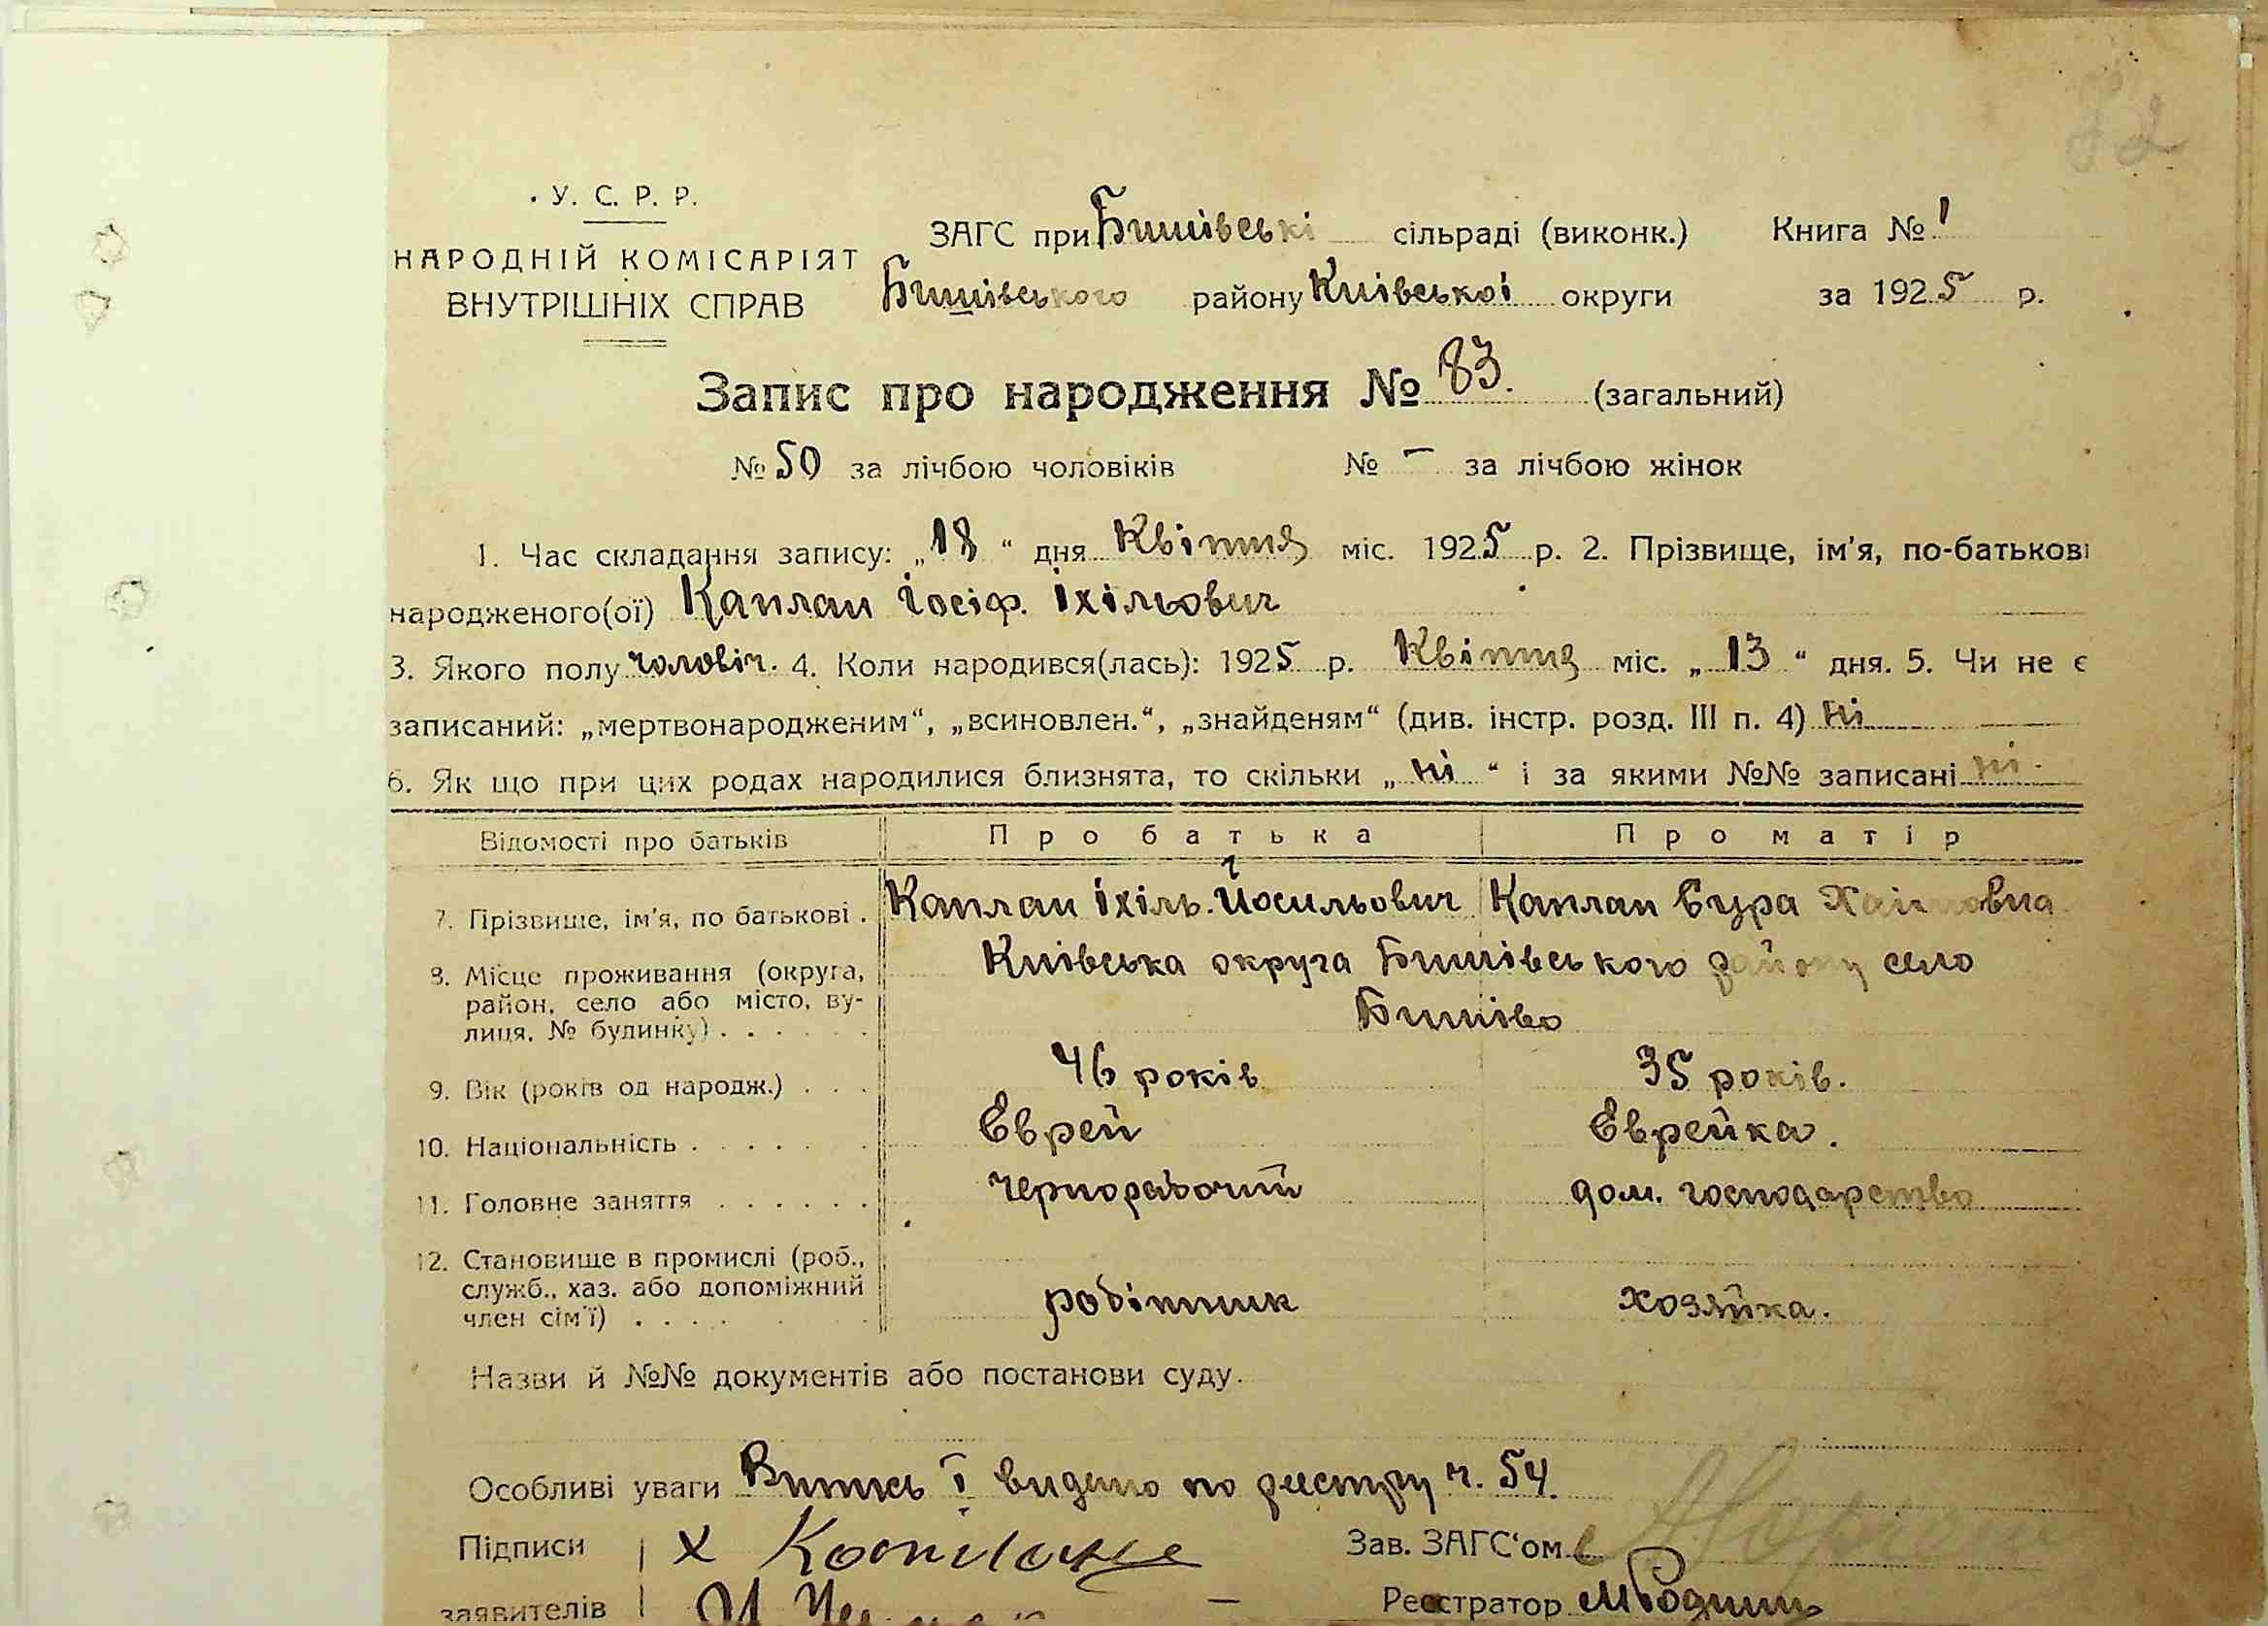 У. С. Р. Р.
НАРОДНІЙ КОМІСАРІЯТ
ВНУТРІШНІХ СПРАВ
ЗАГС при Бишівські сільраді (виконк.) Книга № 1
Бишівського району Київської округи за 1925 р.
Запис про народження № 83. (загальний)
№ 50 за лічбою чоловіків № – за лічбою жінок
1. Час складання запису: „18“ дня Квітня міс. 1925 р. 2. Прізвище, ім'я, по-батькові
народженого(ої) Каплан Іосіф. Іхільович
3. Якого полу чоловіч. 4. Коли народився(лась): 1925 р. Квітня міс. „13“ дня. 5. Чи не є
записаний: „мертвонародженим“, „всиновлен.“, „знайденям“ (див. інстр. розд. III п. 4) ні
6. Як що при цих родах народилися близнята, то скільки „ні“ і за якими №№ записані ні.
Відомості про батьків Про батька Про матір
7. Прізвище, ім'я, по батькові . Каплан Іхіль. Йосильович Каплан Сура Хаімовна
8. Місце проживання (округа, район, село або місто, вулиця, № будинку) . . . . . . Київська округа Бишівського району село
Бишіво
9. Вік (років од народж.) . . . 46 років 35 років.
10. Національність . . . . . . Еврей Еврейка.
11. Головне заняття . . . . . . чернорабочий дом. господарство
12. Становище в промислі (роб.,
служб., хаз. або допоміжний
член сім'ї) . . . . робітник хозяйка.
Назви й №№ документів або постанови суду.
Особливі уваги Витяг і видано по реєстру ч. 54.
Підписи х Зав. ЗАГС'ом
заявителів Реєстратор